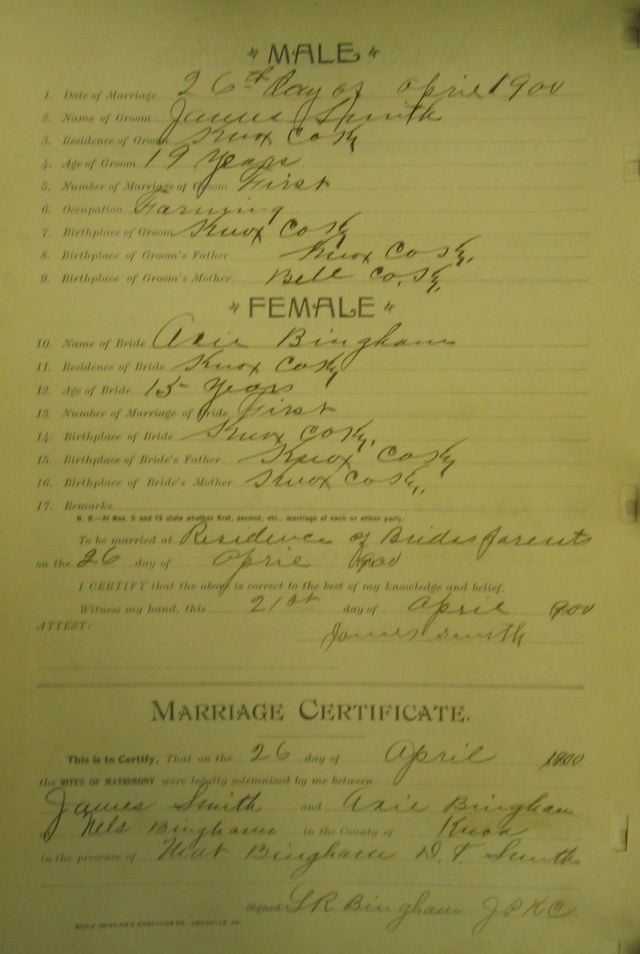 " MALE "
1. Date of Marriage 26th day of April 1900
2. Name of Groom James Smith
3. Residence of Groom Knox Co Ky
4. Age of Groom 19 Years
5. Number of Marriage of Groom First
6. Occupation Farming
7. Birthplace of Groom Knox Co Ky
8. Birthplace of Groom's Father Knox Co Ky,
9. Birthplace of Groom's Mother Bell Co. Ky,
" FEMALE "
10. Name of Bride Axie Bingham
11. Residence of Bride Knox Co Ky
12. Age of Bride 15 Years
13. Number of Marriage of Bride First
14. Birthplace of Bride Knox Co Ky,
15. Birthplace of Bride's Father Knox Co Ky
16. Birthplace of Bride's Mother Knox Co Ky,
17. Remarks
N. B.—At Nos. 5 and 13 state whether first, second, etc., marriage of each or either party.
To be married at Residence of Brides parents
on the 26 day of April 1900
I CERTIFY that the above is correct to the best of my knowledge and belief.
Witness my hand, this 21st day of April 1900
ATTEST: James Smith
MARRIAGE CERTIFICATE.
This is to Certify, That on the 26 day of April 1900
the RITES OF MATRIMONY were legally solemnized by me between
James Smith and Axie Bingham
Nels Bingham in the County of Knox
in the presence of Bingham D. T. Smith
Signed: L R Bingham J P K C